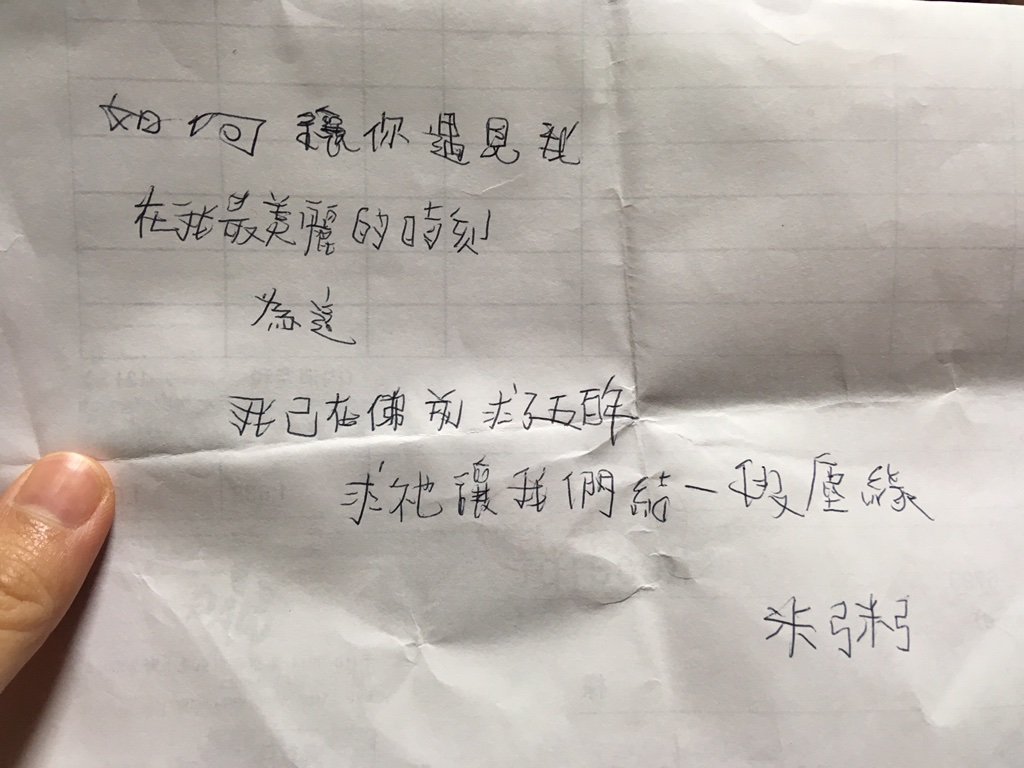 如何讓你遇見我
在我最美麗的時刻
為這
我已在佛前求了五百年
求祂讓我們結一段塵緣
米粥